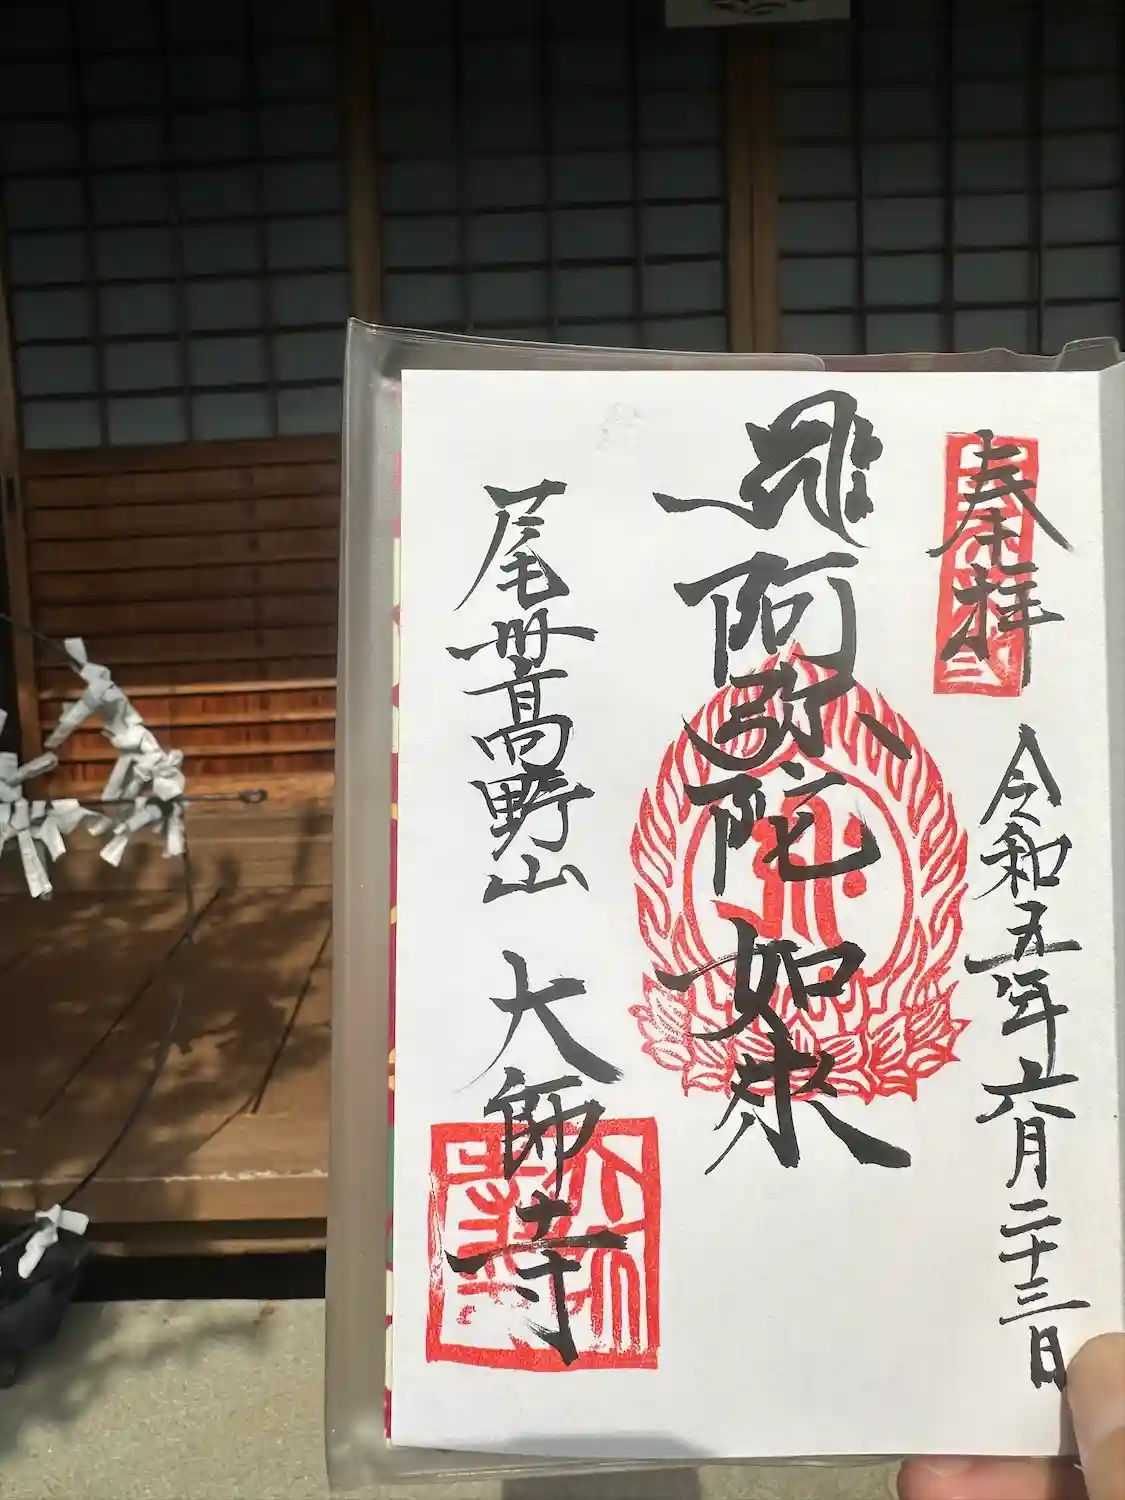 奉拝
令和五年六月二十三日
阿弥陀如來
尾州高野山 大師寺